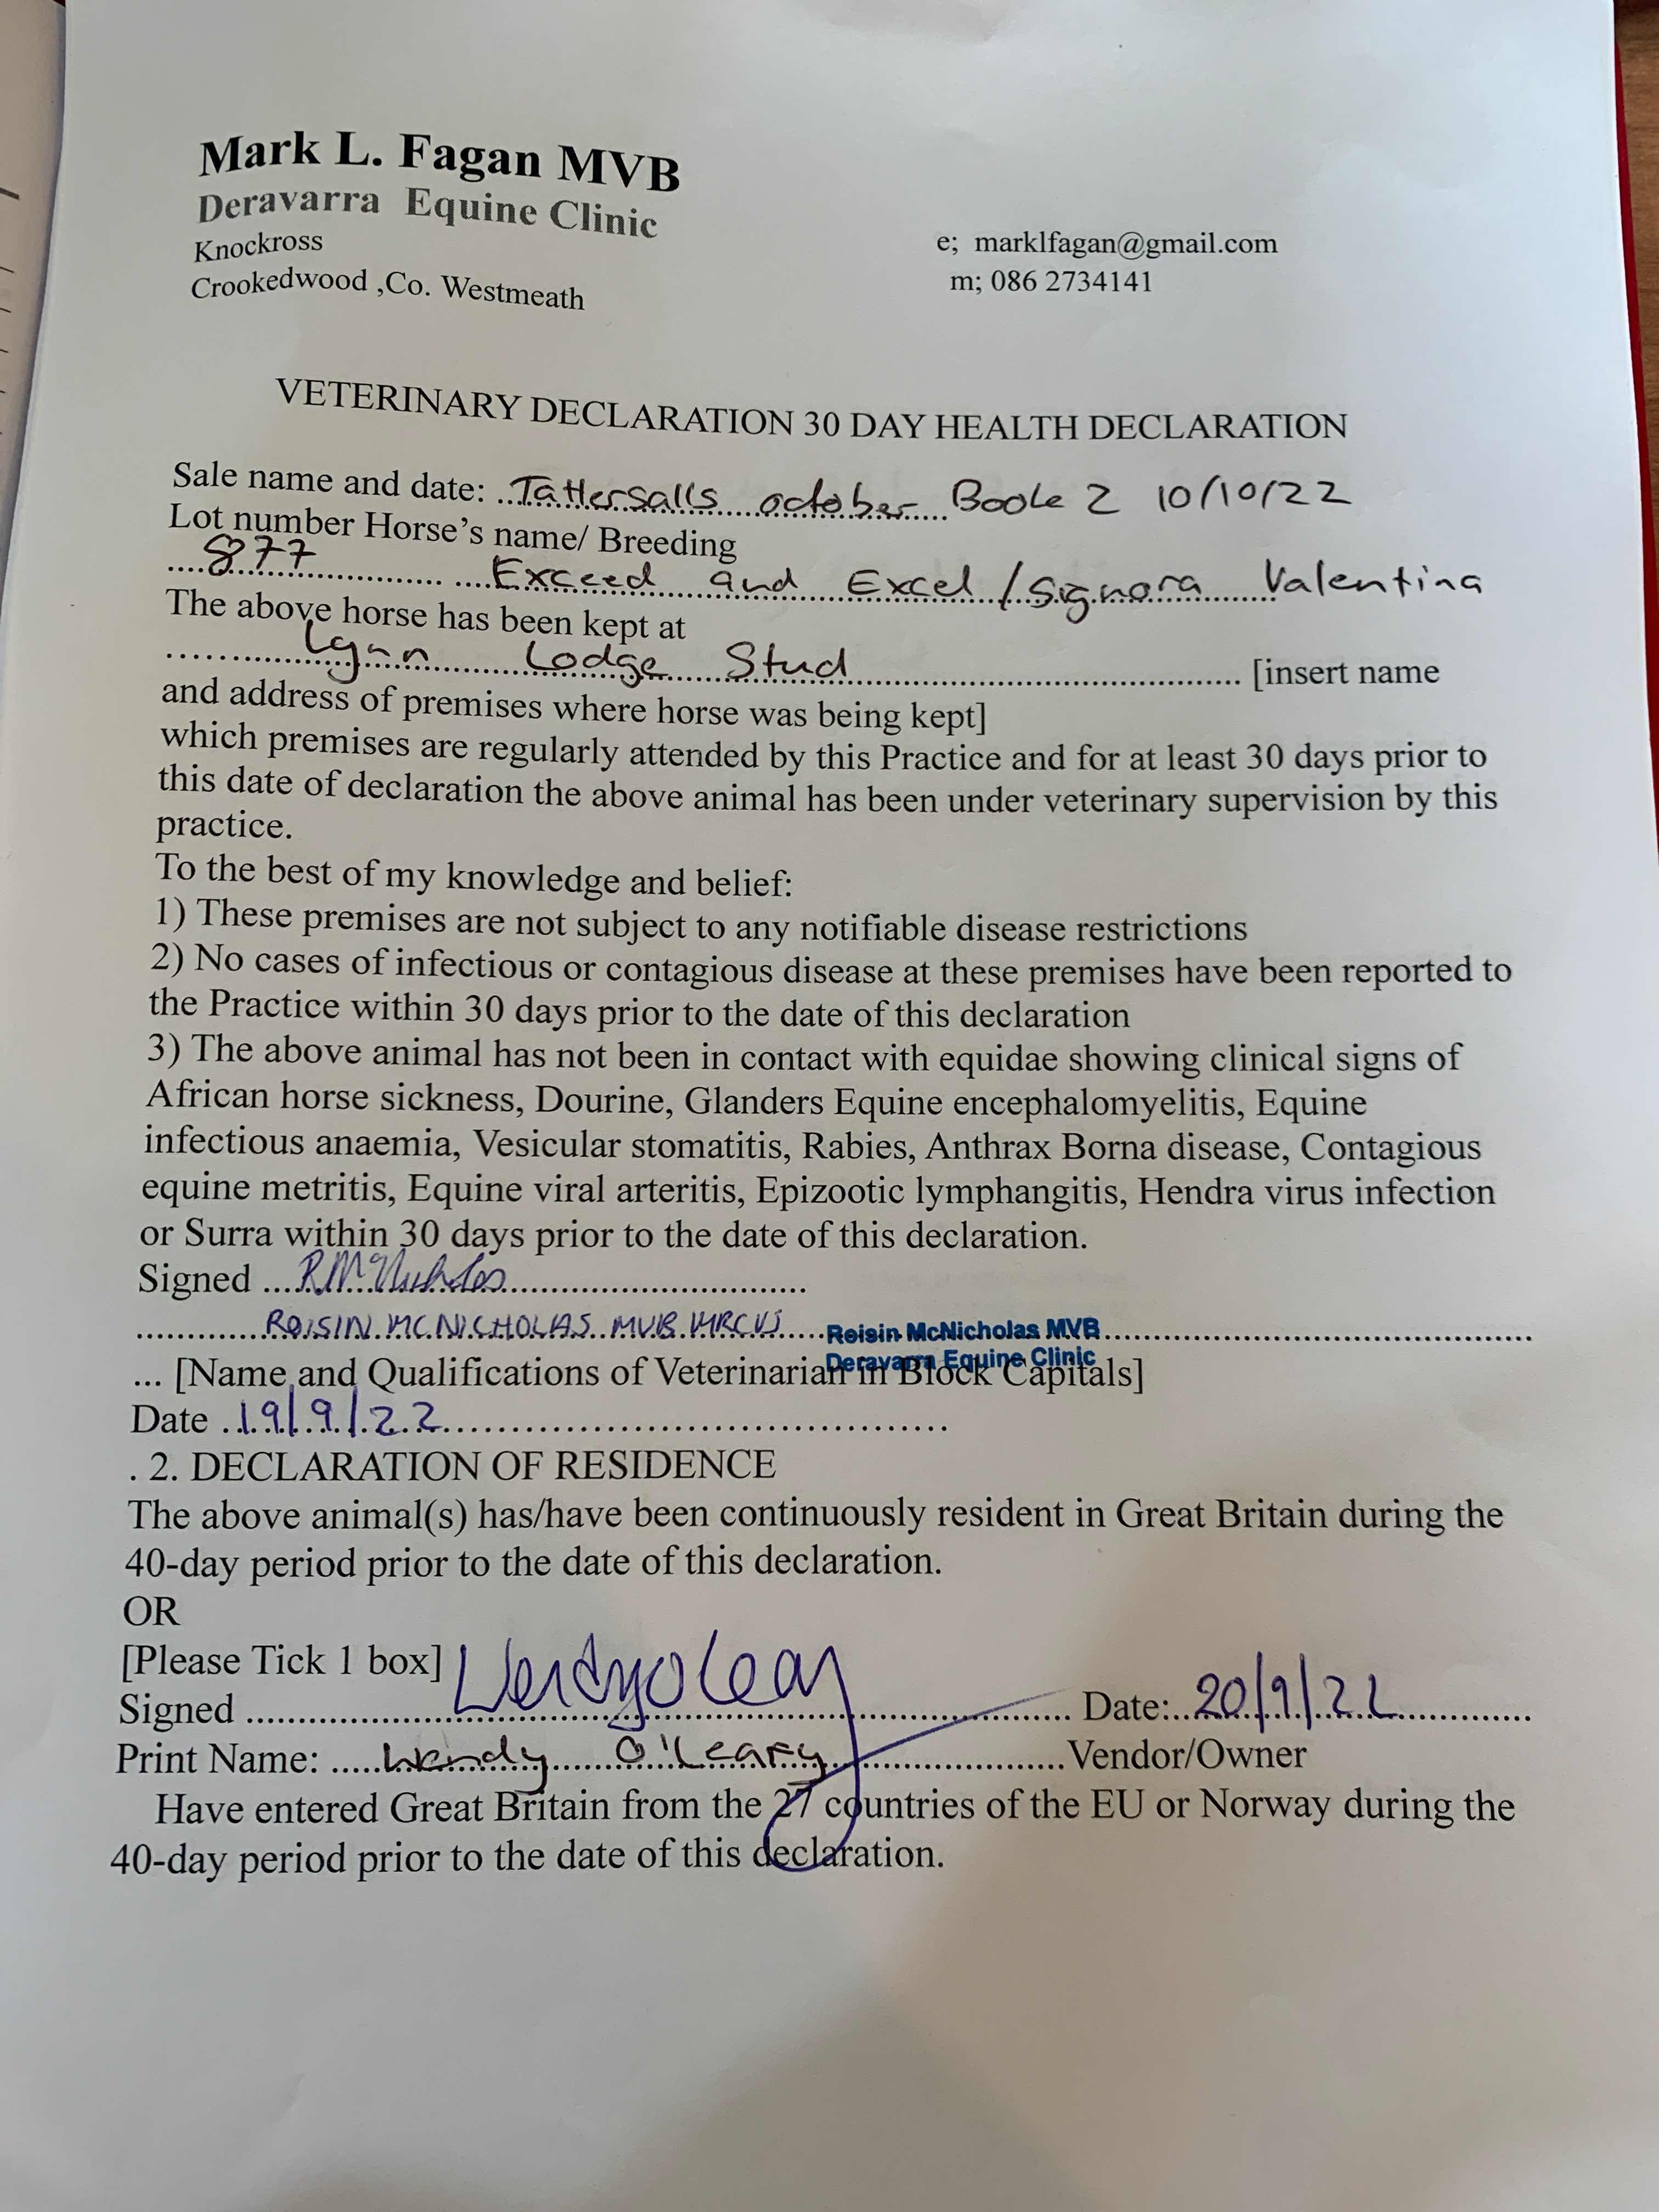 Mark L. Fagan MVB
Deravarra Equine Clinic
Knockross
Crookedwood ,Co. Westmeath
e; marklfagan@gmail.com
m; 086 2734141
VETERINARY DECLARATION 30 DAY HEALTH DECLARATION
Sale name and date: ..Tattersalls october Book 2 10/10/22
Lot number Horse's name/ Breeding
....877.................. ....Exceed and Excel / Signora Valentina
The above horse has been kept at
............Lynn Lodge Stud.......................................... [insert name
and address of premises where horse was being kept]
which premises are regularly attended by this Practice and for at least 30 days prior to
this date of declaration the above animal has been under veterinary supervision by this
practice.
To the best of my knowledge and belief:
1) These premises are not subject to any notifiable disease restrictions
2) No cases of infectious or contagious disease at these premises have been reported to
the Practice within 30 days prior to the date of this declaration
3) The above animal has not been in contact with equidae showing clinical signs of
African horse sickness, Dourine, Glanders Equine encephalomyelitis, Equine
infectious anaemia, Vesicular stomatitis, Rabies, Anthrax Borna disease, Contagious
equine metritis, Equine viral arteritis, Epizootic lymphangitis, Hendra virus infection
or Surra within 30 days prior to the date of this declaration.
Signed ....RMcNicholas..............................
............ROISIN MC NICHOLAS MVB MRCVS....Roisin McNicholas MVB..........................................
Deravarra Equine Clinic
... [Name and Qualifications of Veterinarian in Block Capitals]
Date ..19/9/22..........................................
. 2. DECLARATION OF RESIDENCE
The above animal(s) has/have been continuously resident in Great Britain during the
40-day period prior to the date of this declaration.
OR
[Please Tick 1 box]
Signed ....Wendy O Leary.................... Date:..20/9/22.............
Print Name: .....Wendy O'Leary....................Vendor/Owner
Have entered Great Britain from the 27 countries of the EU or Norway during the
40-day period prior to the date of this declaration.